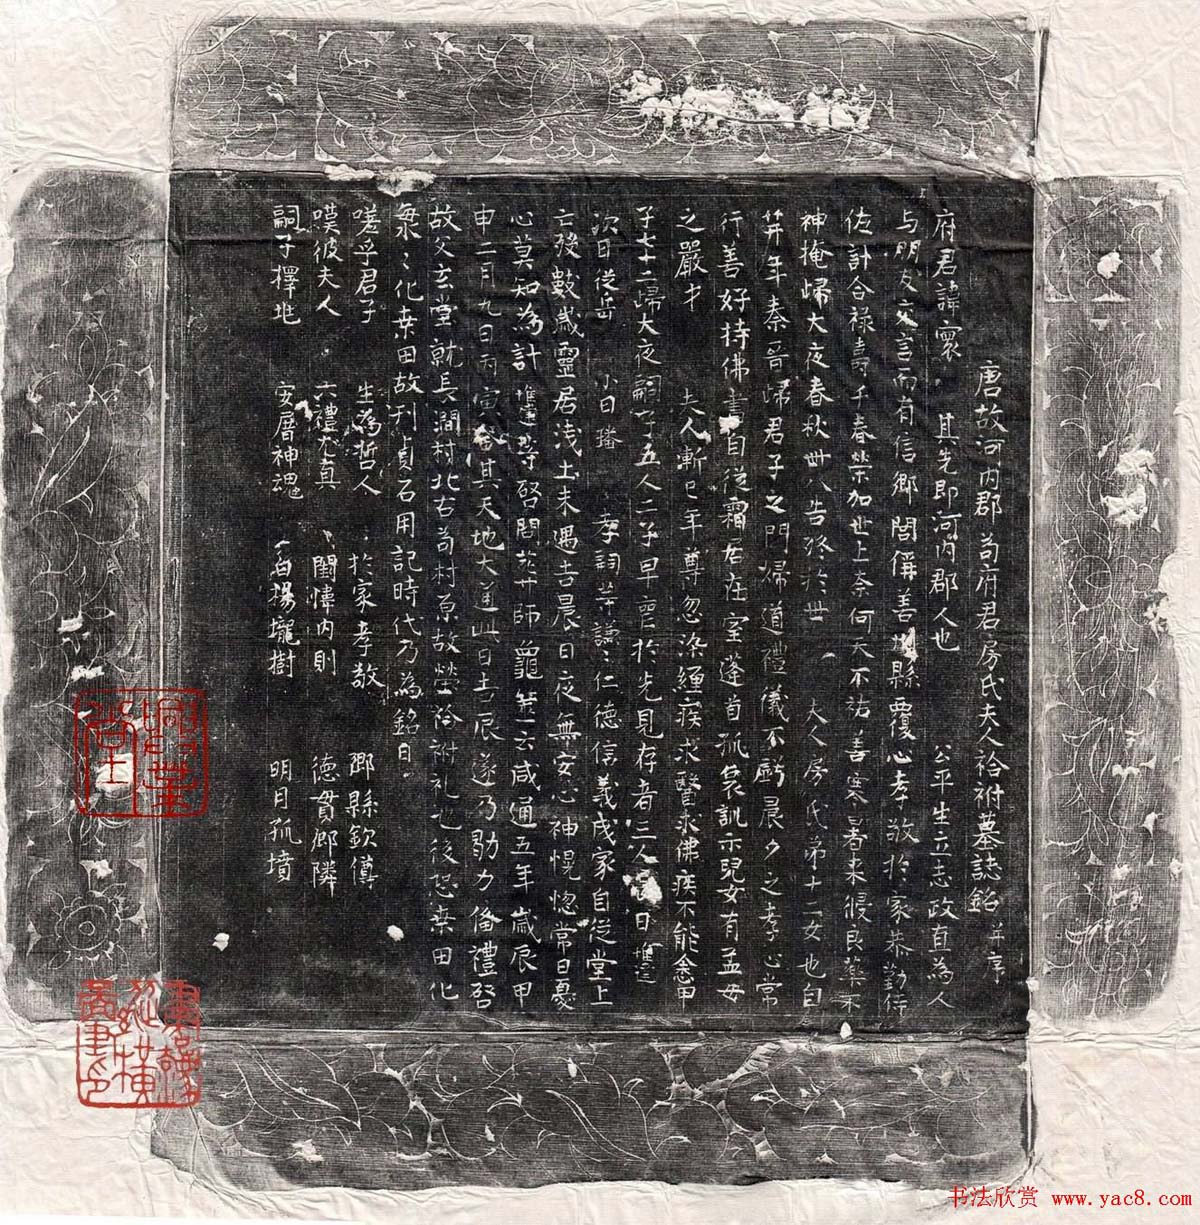 唐故河內郡 苟府君房氏夫人祫祔墓誌銘 并序
府君諱寰 其先即河內郡人也 公平生立志政直為人
与朋友交言而有信鄉閭俻善 縣覆心孝敬於家恭勤侍
佐計合祿壽千春榮加世上奈何天不祐善寒暑來侵良藥不
神掩歸大夜春秋卌八告終於世 夫人房氏弟十二女也自
笄年秦晉歸君子之門婦道禮儀不虧晨夕之孝心常
行善好持佛書自從霜居在室蓬首孤哀訓示兒女有孟母
之嚴才 夫人漸已年尊忽染纏疾求醫求佛疾不能愈甲
子七十二歸大夜嗣子五人二子早 於先見存者三人 曰
次曰從岳 小曰璠 孝詞等謙謙仁德信義成家自從堂上
亡歿數歲靈居淺土未遇吉晨日夜無安心神恍惚常日憂
心莫知為計 等啓問 師龜筮云咸通五年歲辰甲
申二月九日丙寅 其天地大通此日吉辰遂乃勠力俻禮啓
故父玄堂就長澗村北右苟村原故塋祫祔礼也後恐桒田化
海海化桒田故刋貞石用記時代乃為銘曰
嗟乎君子 生為哲人 於家孝敬 鄉縣欽傳
嘆彼夫人 六禮尤真 閨幃內則 德貫鄉隣
嗣子擇地 安厝神魂 白楊壠樹 明月孤墳
书法欣赏 www.yac8.com